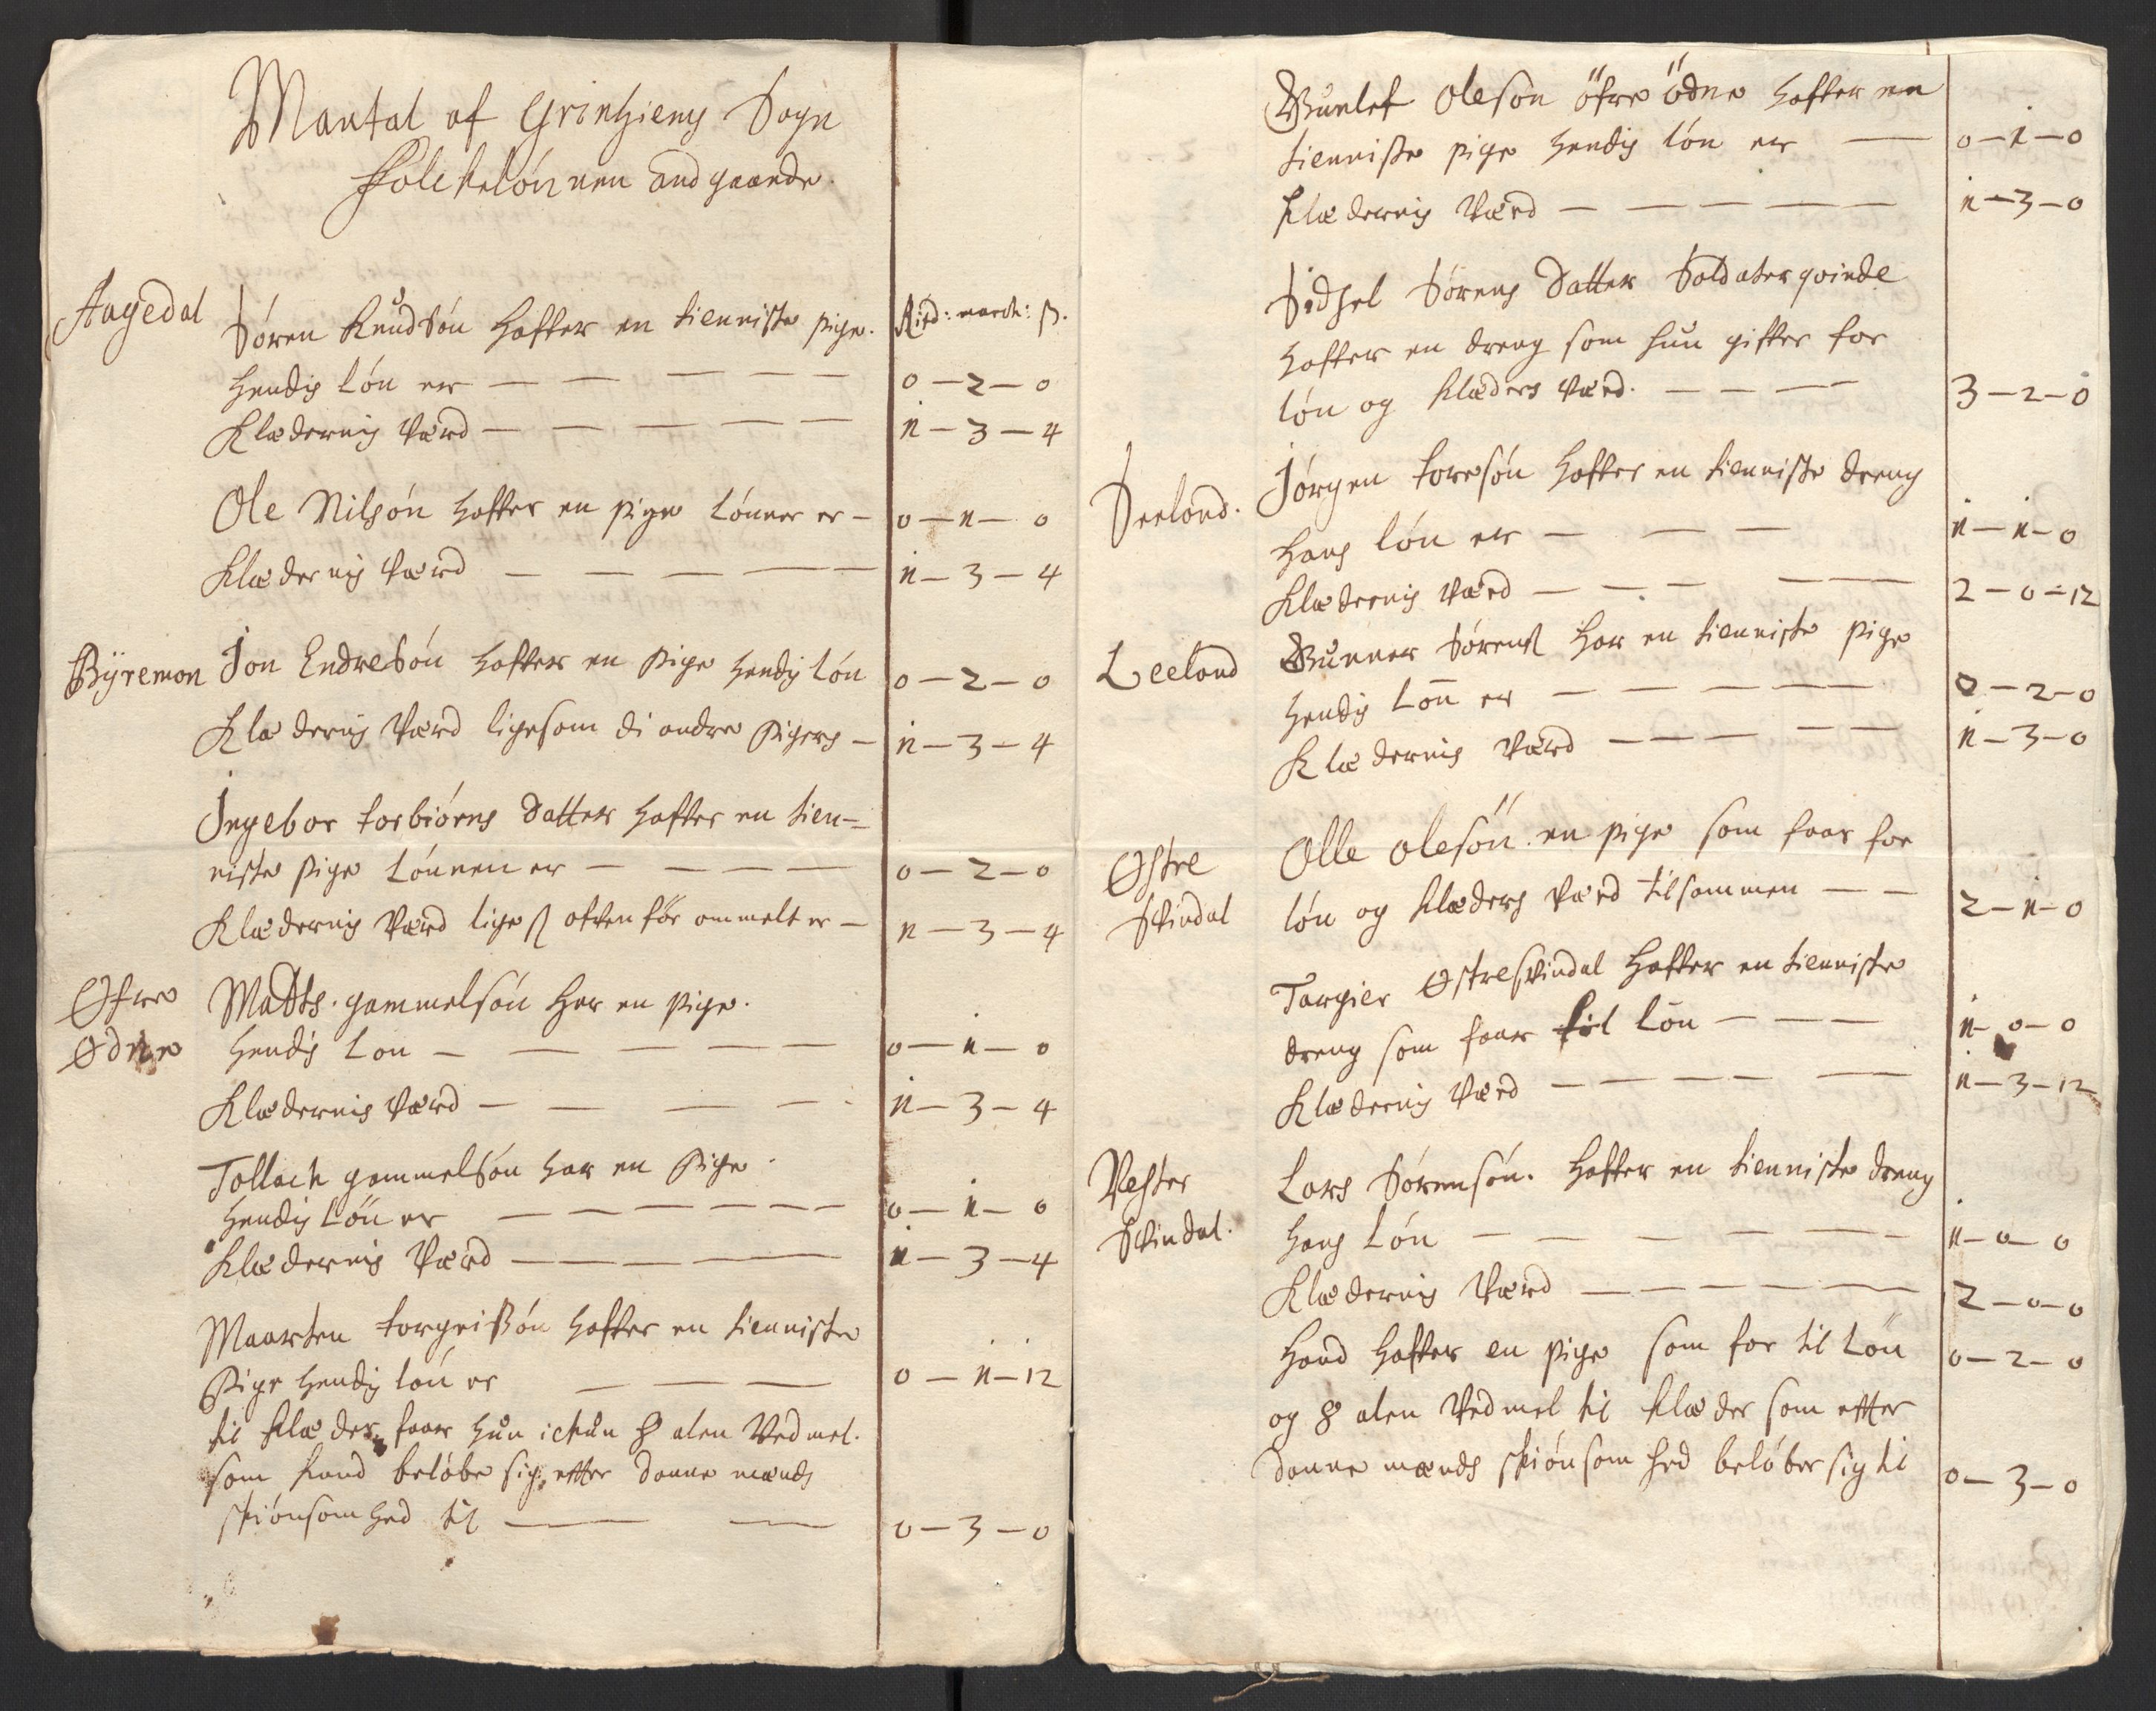 Mantal af Grinhiems Sogn
Folckelónnen andgaaende.
Rixd: march: ß.
Aagedal Sóren Knudsón hafver en tienniste pige.
hendis lón er — — — — — 0 — 2 — 0
Klædernis Værd — — — — — 1 — 3 — 4
Ole Nilsón hafver en pige lónner er — 0 — 1 — 0
Klædernis Værd — — — — — 1 — 3 — 4
Bÿremon Jon Endresón hafver en Pige hendis lón 0 — 2 — 0
Klædernis Værd ligesom di andre Pigers — 1 — 3 — 4
Ingebor torbiórns datter hafver en tien=
niste pige lónnen er — — — — 0 — 2 — 0
Klædernis Værd lige ofven fór ommelt er — 1 — 3 — 4
Øfre Matts gammelsón har en Pige.
Ødne hendis Lon — — — — — 0 — 1 — 0
Klædernis Værd — — — — 1 — 3 — 4
Tollach gammelsón har en Pige.
hendis Lón er — — — — — — 0 — 1 — 0
Klædernis Værd — — — — — 1 — 3 — 4
Maarten torgeissón hafver en tienniste
Pige hendis lón er — — — 0 — 1 — 12
til Klæder faar hun ickun 8 alen Vedmel.
som kand belóbe sig, efter danne mænds
skiónsomhed til — — 0 — 3 — 0
Gunlef Olesón öfre ödne hafver en
tienniste pige hendis lón er — 0 — 1 — 0
Klædernis Værd — — — — — 1 — 3 — 0
Sidsel Sórens Datter Soldaterqvinde
hafver en dreng som hun gifver for
lón og Klæders Værd. — — — — 3 — 2 — 0
Seeland. Jórgen toresón hafver en tienniste dreng
hans lón er — — — 1 — 1 — 0
Klædernis Værd — — — — — — 2 — 0 — 12
Leeland Gunner Sórens har en tienniste pige
hendis Lón er — — — — — 0 — 2 — 0
Klædernis Værd — — — — — 1 — 3 — 0
Østre Olle olesón en pige som faar for
Svindal lón og Klæders Værd tilsammen — — 2 — 1 — 0
Targier Østresvindal hafver en tienniste
dreng som faar til lón — — — 1 — 0 — 0
Klædernis Værd — — — — — — 1 — 3 — 12
Vester Lars Sórensón. hafver en tienniste dreng
Svindal. hans Lón — — — — — — 1 — 0 — 0
Klædernis Værd — — — — — 2 — 0 — 0
Hand hafver en pige som for til Lón 0 — 2 — 0
og 8 alen Vedmel til Klæder som efter
danne mænds skiónsomhed belóber sig til 0 — 3 — 0